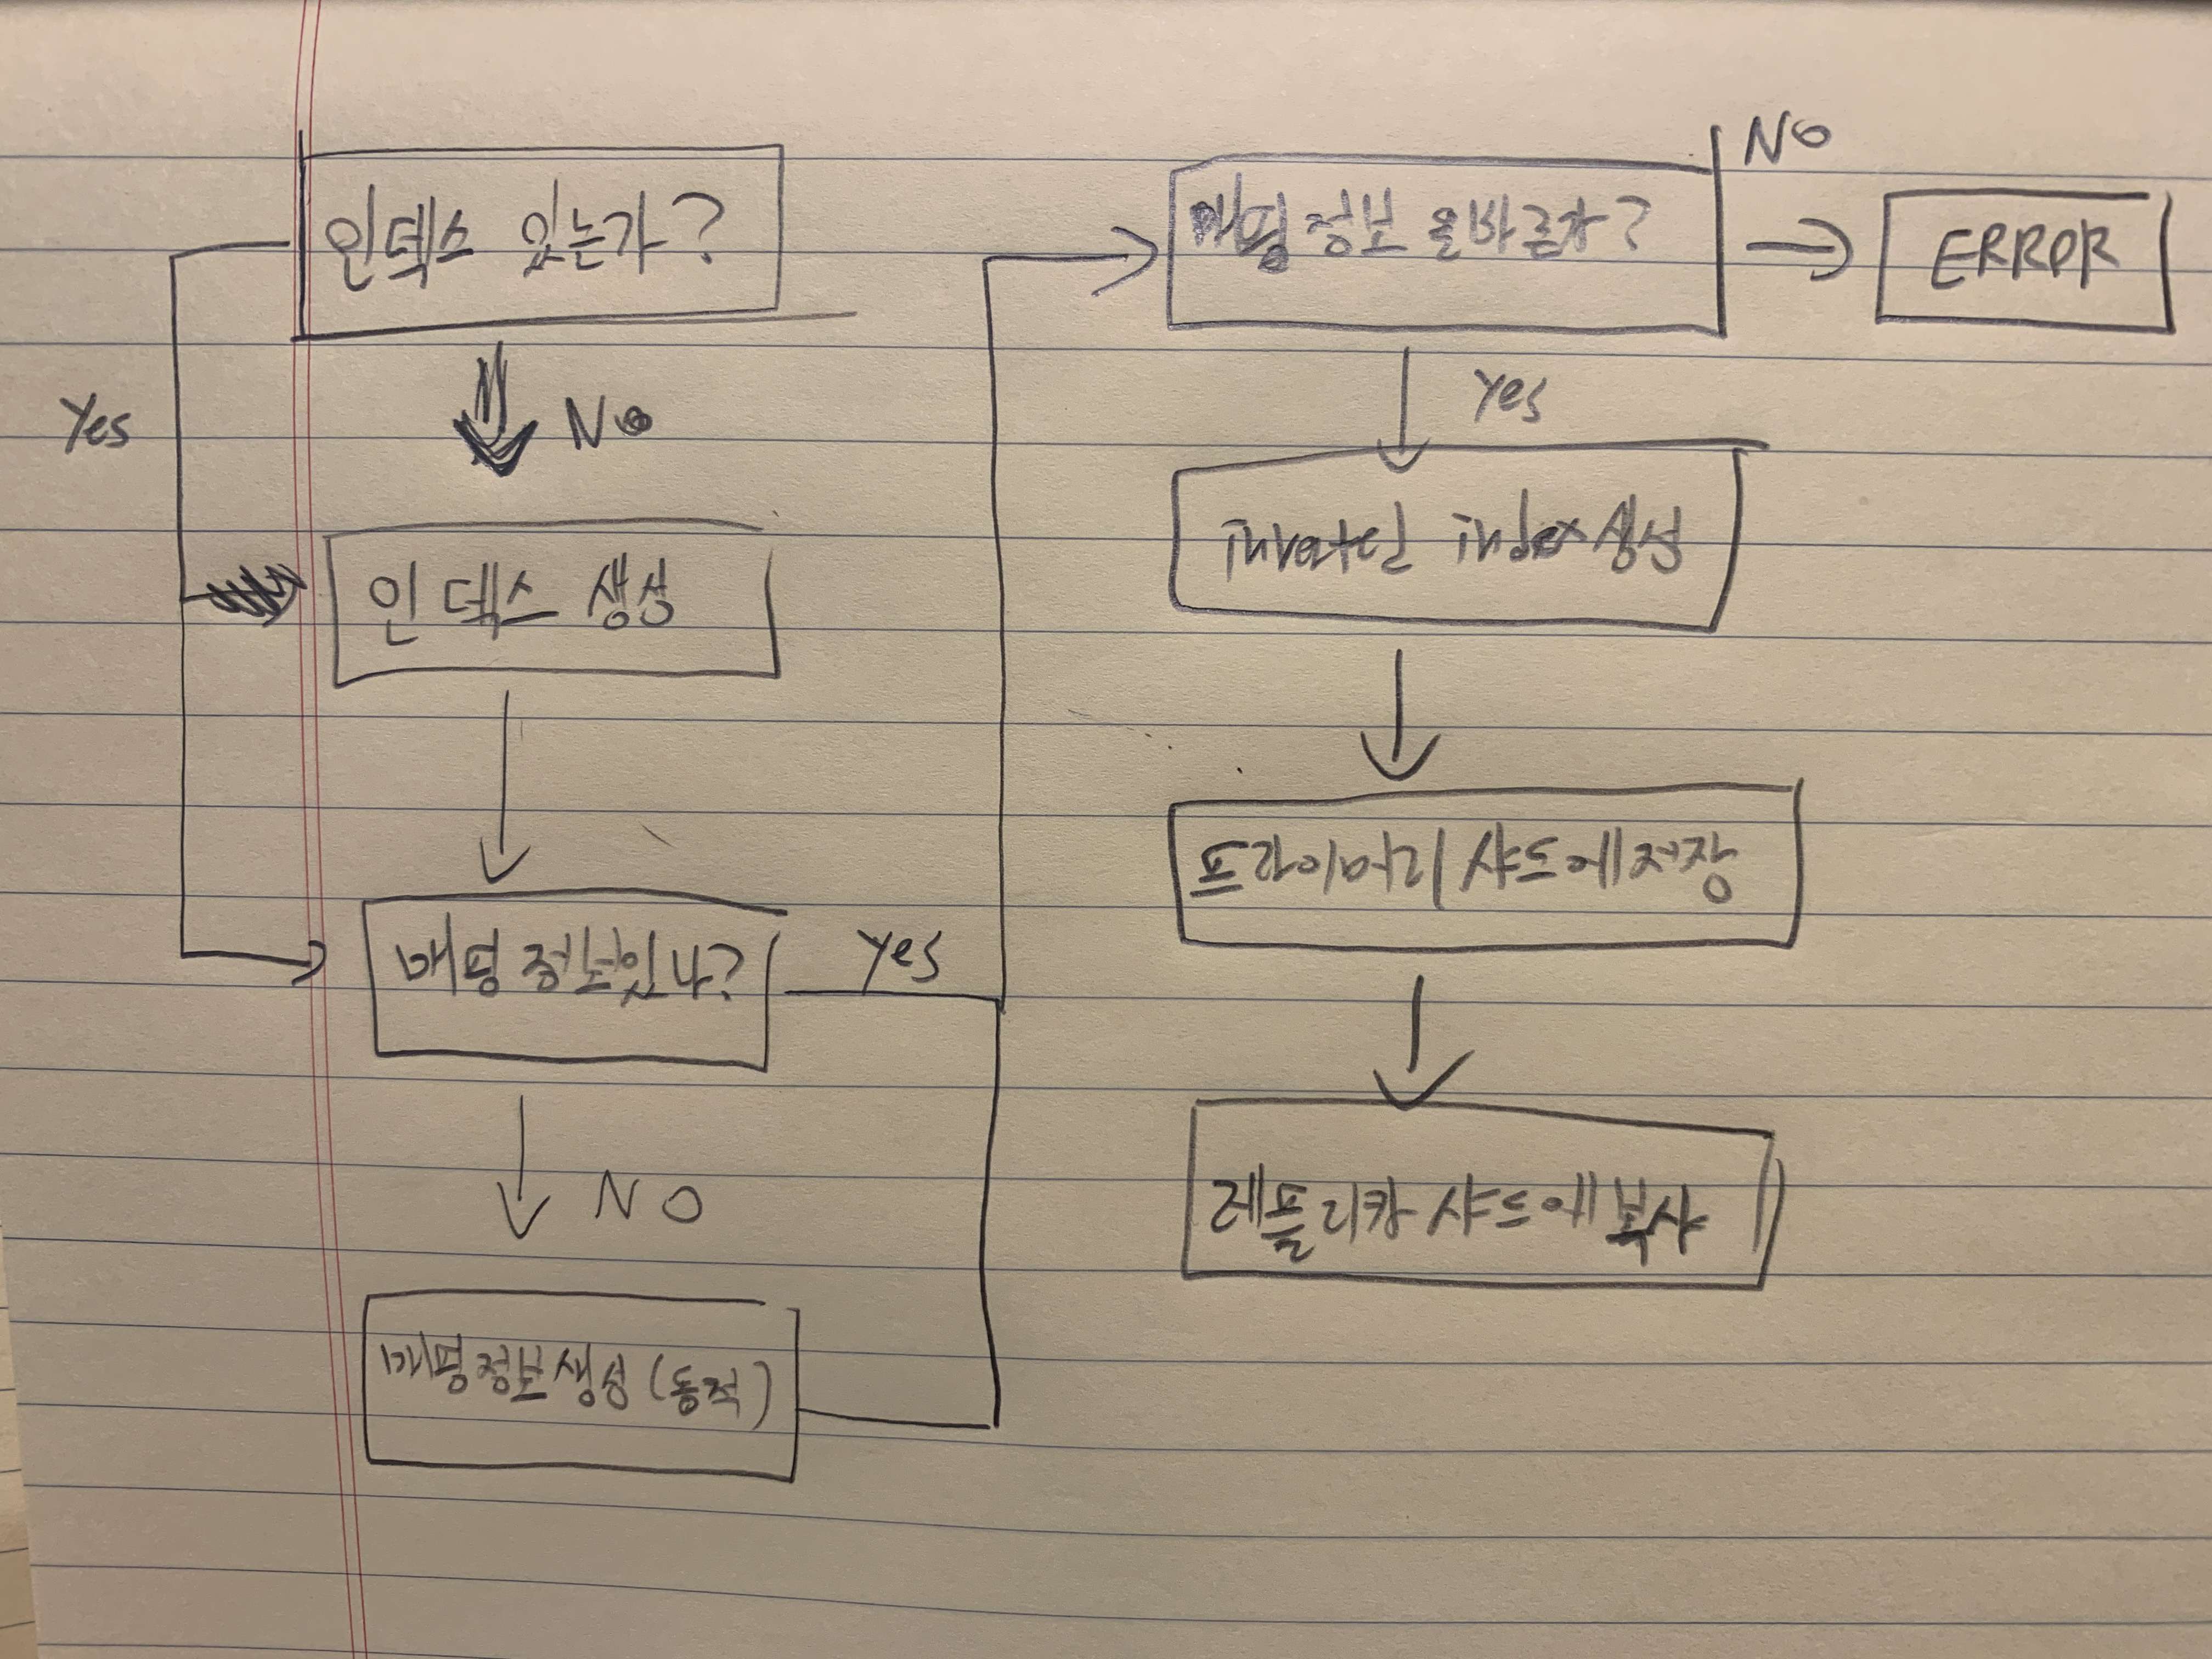 인덱스 있는가?
Yes
No
인덱스 생성
매핑정보있나?
yes
NO
매핑정보생성(동적)
매핑정보 올바른가?
No
ERROR
yes
inverted index생성
프라이머리 샤드에저장
레플리카 샤드에복사